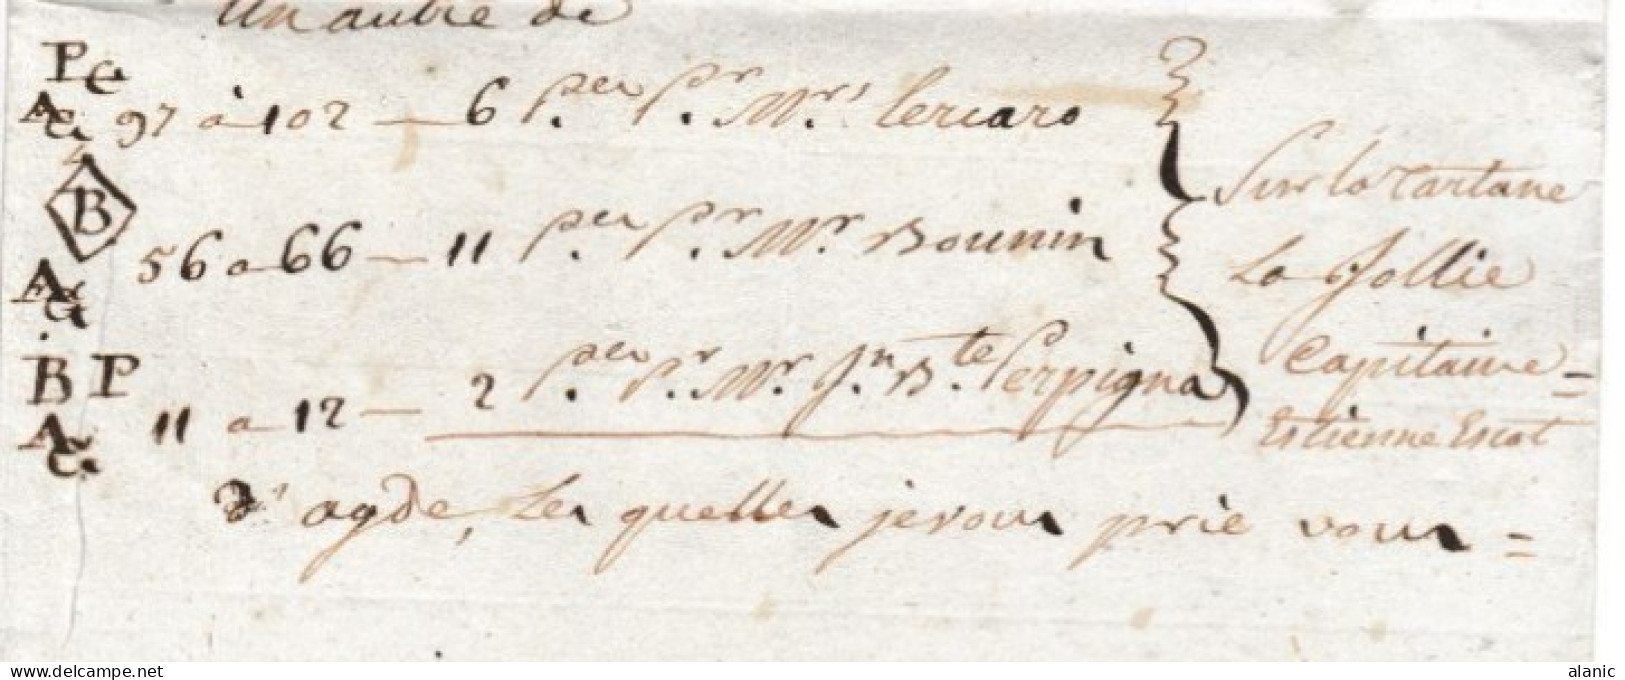 un autre de
PC
AC. 97 à 102 — 6 p.ces P.r M.rs Lercaro
B
56 a 66 — 11 p.ces P.r M.r Bounin
AC
BP
AC. 11 a 12 — 2 p.ces P.r M.r J.n B.te Perpigna
Sur la Tartane
La Jollie
Capitaine =
Estienne Escot
d'agde, Les quelles je vous prie vous =
www.delcampe.net
alanic